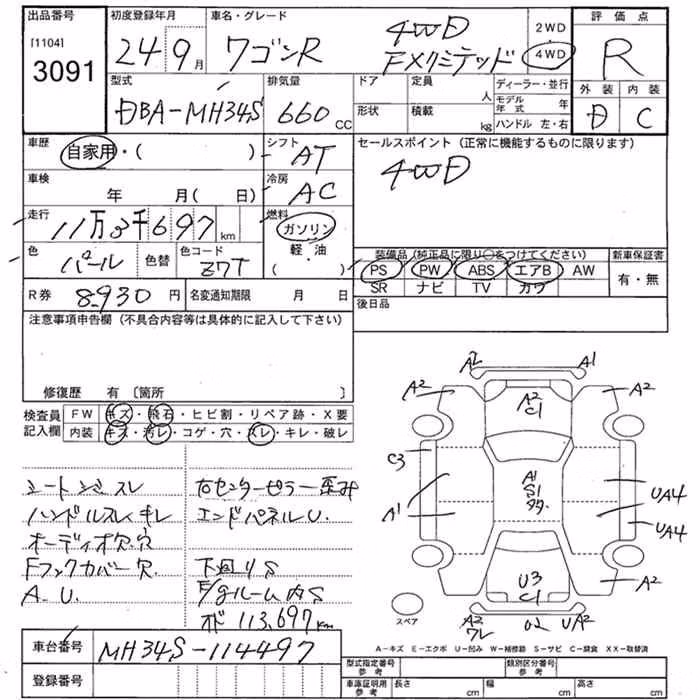 出品番号 初度登録年月 車名・グレード 4WD 2WD 評価点
[1104] 3091 24 9月 ワゴンR FXリミテッド 4WD R
型式 排気量 ドア 定員 人 ディーラー・並行 外装 内装
DBA-MH34S 660 CC 形状 積載 kg モデル年式 年 D C
ハンドル 左・右
車歴 自家用・( ) シフト AT セールスポイント (正常に機能するものに限ります)
車検 年 月( 日) 冷房 AC 4WD
走行 11万3千697 km 燃料 ガソリン
軽油
色 パール 色替 色コード Z7T ( ) 装備品(純正品に限り○をつけてください) 新車保証書
PS PW ABS エアB AW 有・無
SR ナビ TV カワ
R券 8930 円 名変通知期限 月 日 後日品
注意事項申告欄 (不具合内容等は具体的に記入して下さい)
修復歴 有 〔箇所 〕
検査員 FW キズ・飛石・ヒビ割・リペア跡・X要
記入欄 内装 キズ・汚レ・コゲ・穴・スレ・キレ・破レ
シートシミスレ 右センターピラー歪み
ハンドルスレ キレ エンドパネルU.
オーディオ欠.穴
Fフックカバー欠. 下廻りS
A.U. F/gルーム内S
113,697km
車台番号 MH34S-114497
登録番号
A2 A1
A2 A2 C1 A2
C3
A1 A1 S1 UA4
UA4
U3 C1 A2
スペア A2 ワレ UA2
A-キズ E-エクボ U-凹み W-補修跡 S-サビ C-腐食 XX-取替済
型式指定番号 参考 類別区分番号 参考
車庫証明用 参考 長さ cm 幅 cm 高さ cm